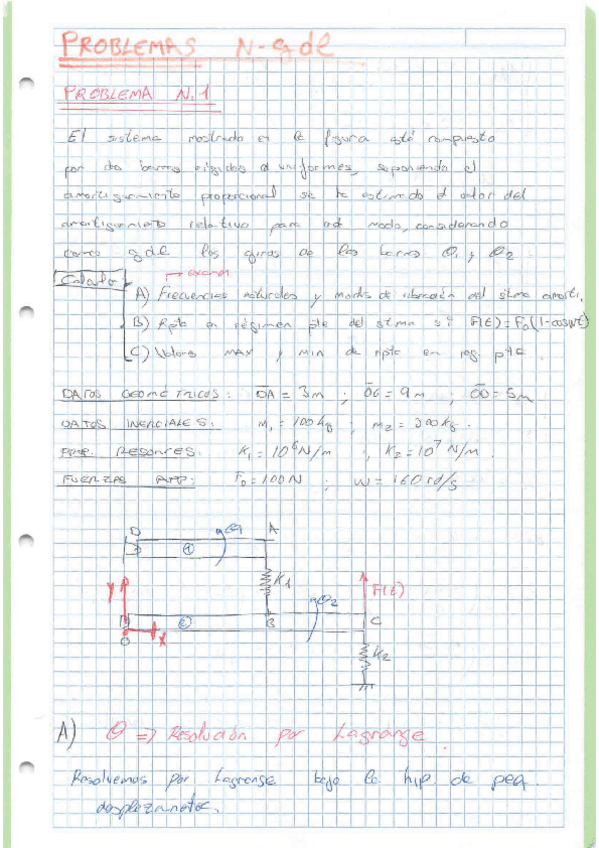 PROBLEMAS N-gdl
PROBLEMA N.1
El sistema mostrado en la figura está compuesto
por dos barras rígidas y uniformes, suponiendo el
amortiguamiento proporcional se ha estimado el valor del
amortiguamiento relativo para cada modo, considerando
como g.d.l. los giros de las barras θ1 y θ2
Calcular
→ examen
A) Frecuencias naturales y modos de vibración del stma amorti.
B) Rpta en régimen pte del stma si F(t) = F0(1-cosωt)
C) Valores MAX y MIN de rpta en reg. pte.
DATOS GEOMÉTRICOS: OA = 3m ; OG = 9m ; OD = 5m
DATOS INERCIALES: m1 = 100kg ; m2 = 300kg.
PROP. RESORTES: K1 = 10⁶ N/m ; K2 = 10⁷ N/m.
FUERZAS APP: F0 = 100N ; W = 160 rd/s
D
θ1
A
1
K1
Y
θ2
F(t)
2
B
C
O
X
K2
A) θ => Resolución por Lagrange.
Resolvemos por Lagrange bajo la hip. de peq.
desplazamientos.